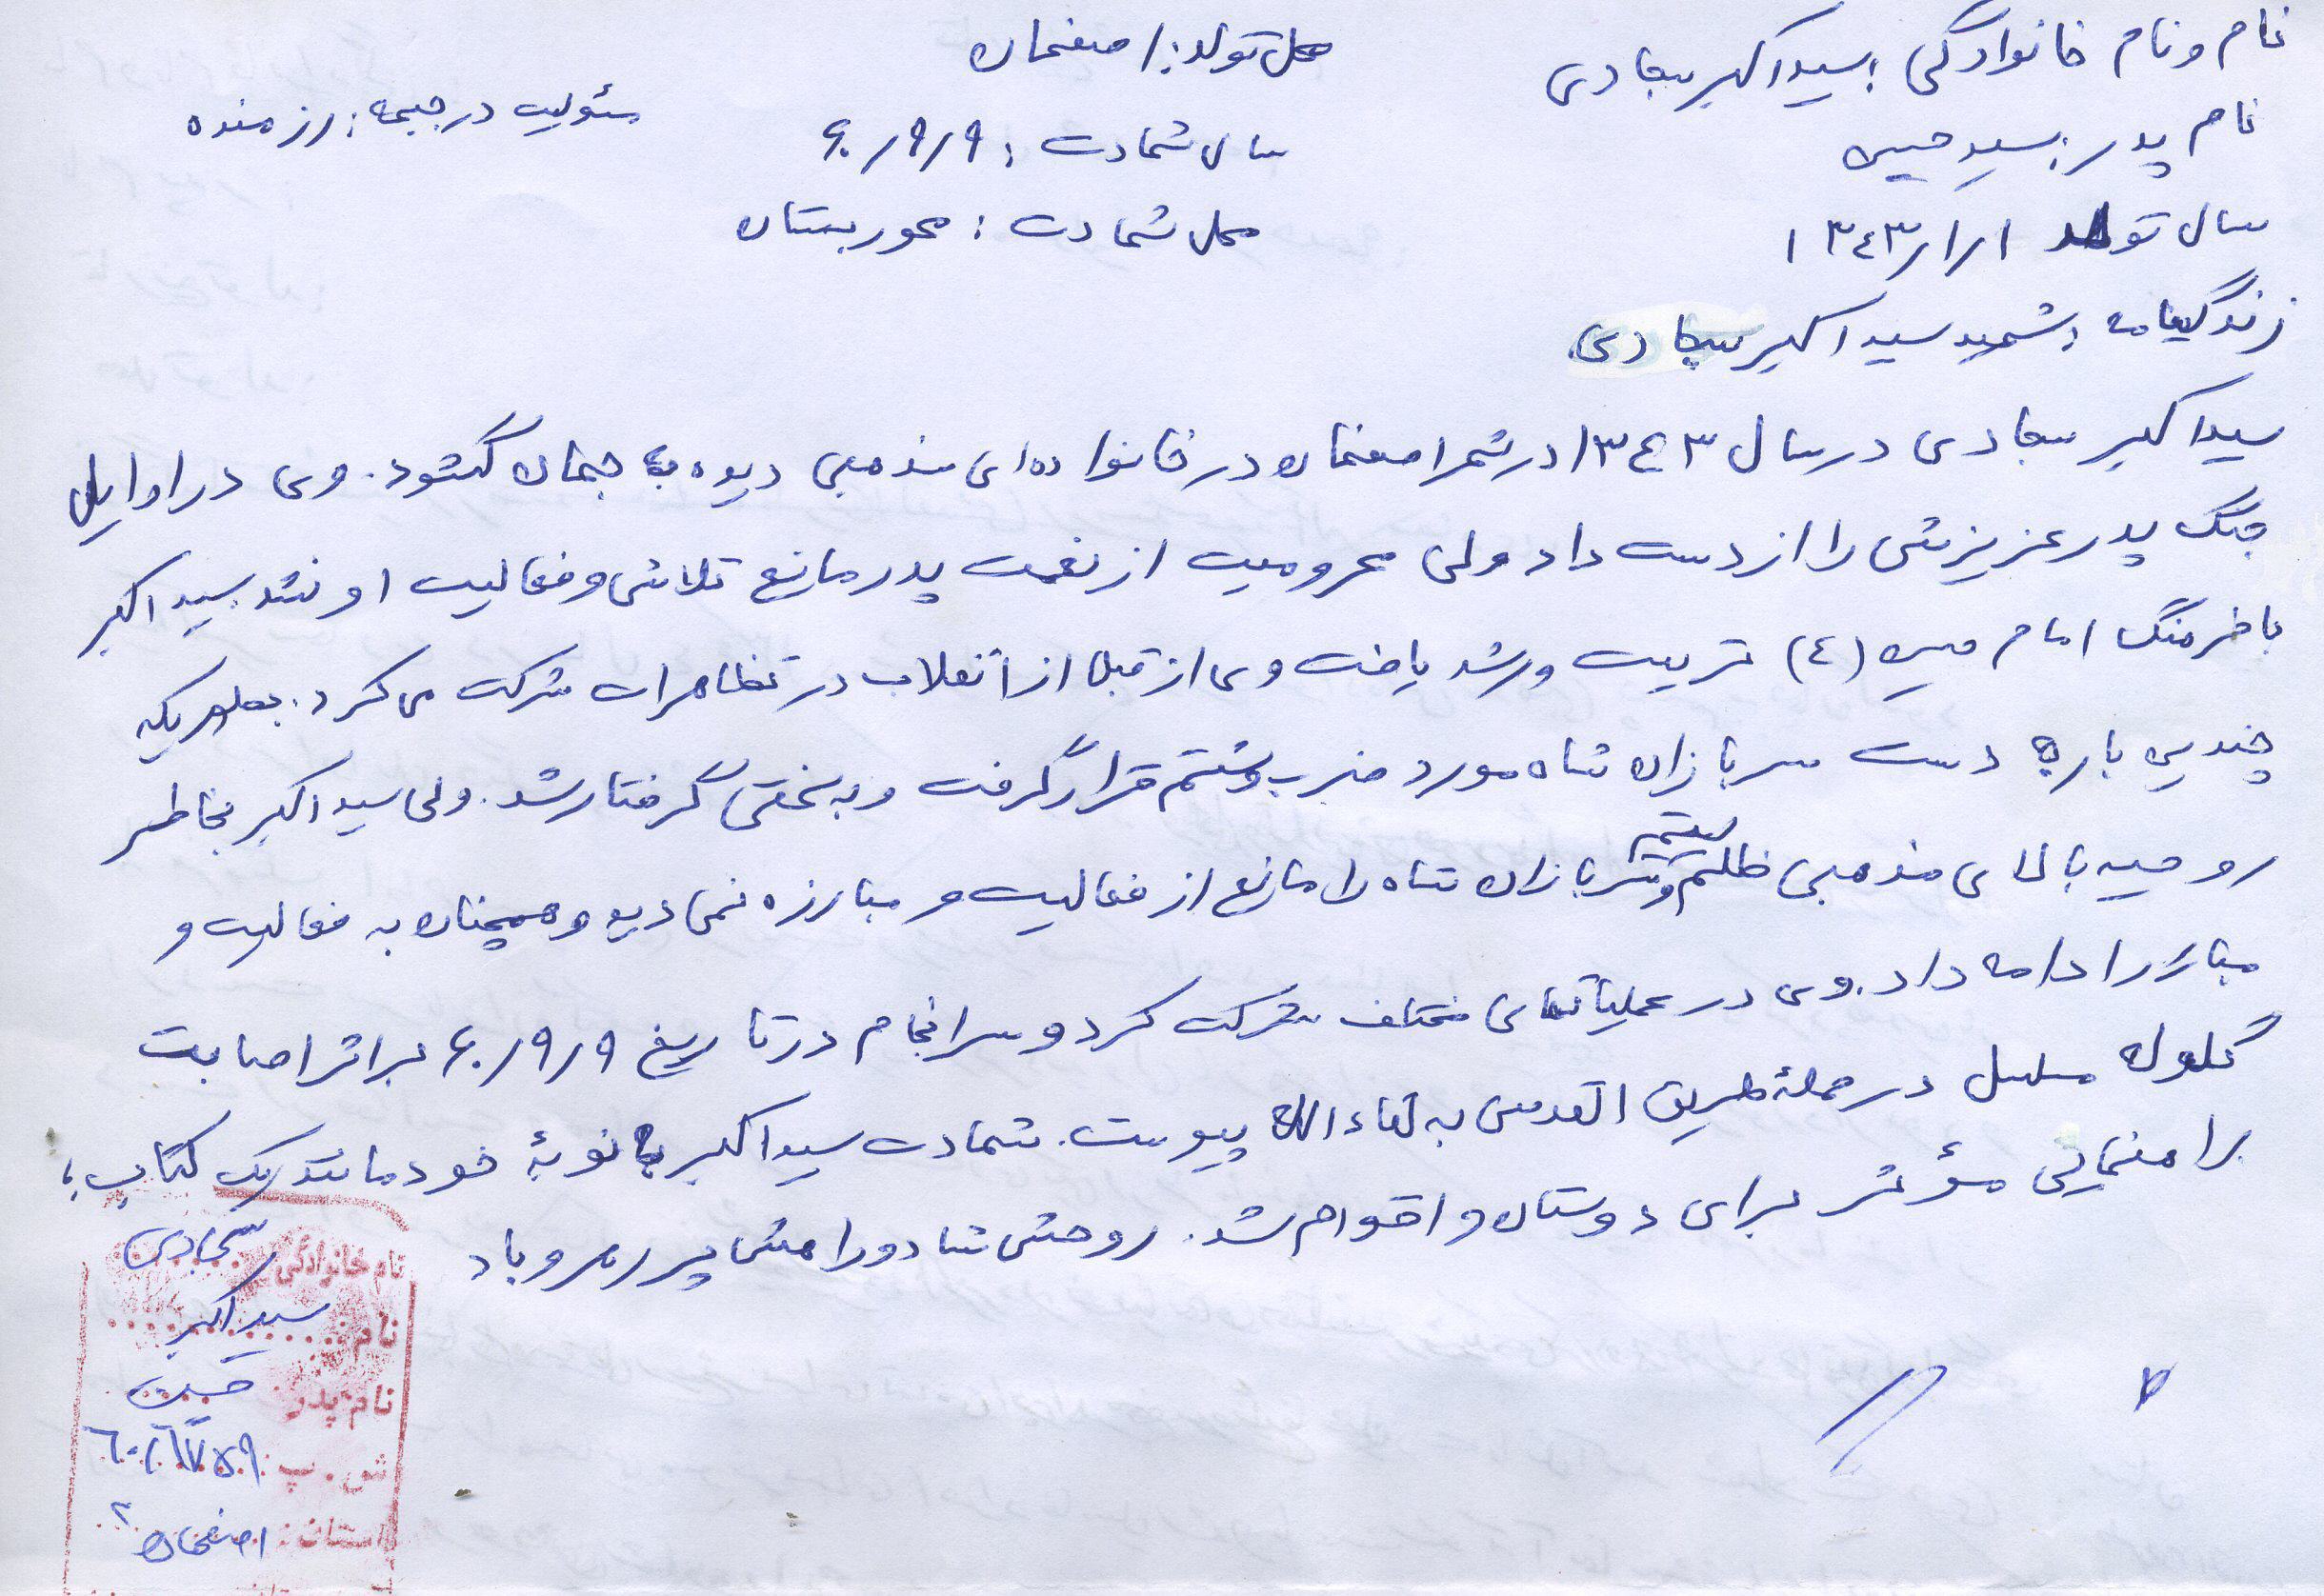 نام و نام خانوادگی : سید اکبر سجادی
محل تولد : اصفهان
مسئولیت در جبهه : رزمنده
نام پدر : سید حسین
سال شهادت : ۶۰/۹/۹
سال تولد ۱۳٤۳/۱/۱
محل شهادت : محور بستان
زندگینامه : شهید سید اکبر سجادی
سید اکبر سجادی در سال ۱۳٤۳ در شهر اصفهان در خانواده ای مذهبی دیده به جهان گشود. وی در اوایل
جنگ پدر عزیزش را از دست داد ولی محرومیت از نعمت پدر مانع تلاش و فعالیت او نشد سید اکبر
با فرهنگ امام حسین (ع) تربیت و رشد یافت وی از قبل از انقلاب در تظاهرات شرکت می کرد. بطوریکه
چندین بار به دست سربازان شاه مورد ضرب و شتم قرار گرفت و به سختی گرفتار شد. ولی سید اکبر بخاطر
روحیه بالای مذهبی ظلم و ستم سربازان شاه را مانع از فعالیت و مبارزه نمی دید و همچنان به فعالیت و
مبارزا دامه داد. وی در عملیاتهای مختلف شرکت کرد و سرانجام در تاریخ ۶۰/۹/۹ بر اثر اصابت
گلوله مسلسل در حمله طریق القدس به لقاء الله پیوست. شهادت سید اکبر به نوبهٔ خود مانند یک کتاب ،
راهنمایی مؤثر برای دوستان و اقوام شد. روحش شاد و راهش پر رهرو باد
نام خانوادگی سجادی
نام : سید اکبر
نام پدر حسین
ش . پ ٦٠١٦٧٥٩
استان : اصفهان ۲